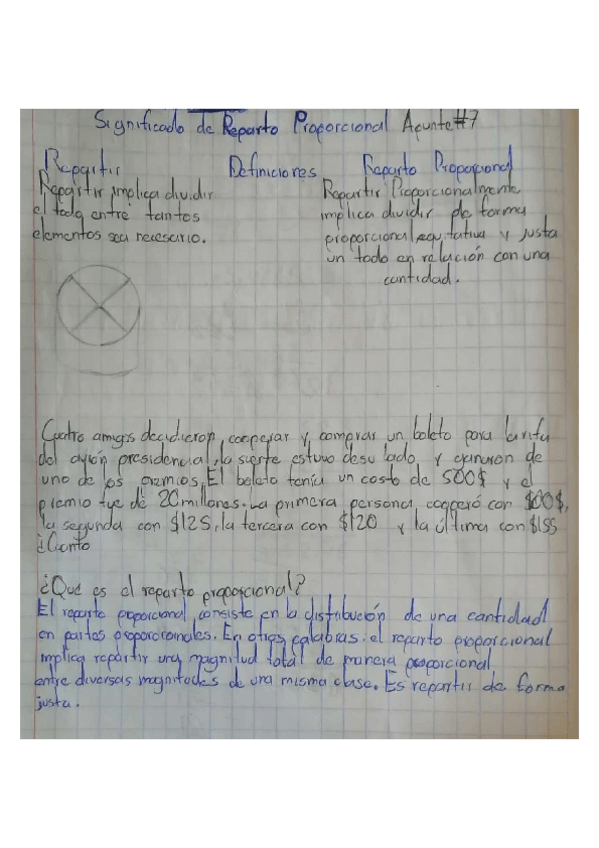 Significado de Reparto Proporcional Apunte#7
Repartir Definiciones Reparto Proporcional
Repartir implica dividir
el todo entre tantos
elementos sea necesario.
Repartir Proporcionalmente
implica dividir de forma
proporcional,equitativa y justa
un todo en relación con una
cantidad.
Cuatro amigos decidieron cooperar y comprar un boleto para la rifa
del avión presidencial, la suerte estuvo de su lado y ganaron
uno de los premios. El boleto tenía un costo de 500$ y el
premio fue de 20 millones. La primera persona cooperó con $100$,
la segunda con $125, la tercera con $120 y la última con $155
¿Cuanto
¿Qué es el reparto proporcional?
El reparto proporcional consiste en la distribución de una cantidad
en partes proporcionales. En otras palabras: el reparto proporcional
implica repartir una magnitud total de manera proporcional
entre diversas magnitudes de una misma clase. Es repartir de forma
justa.